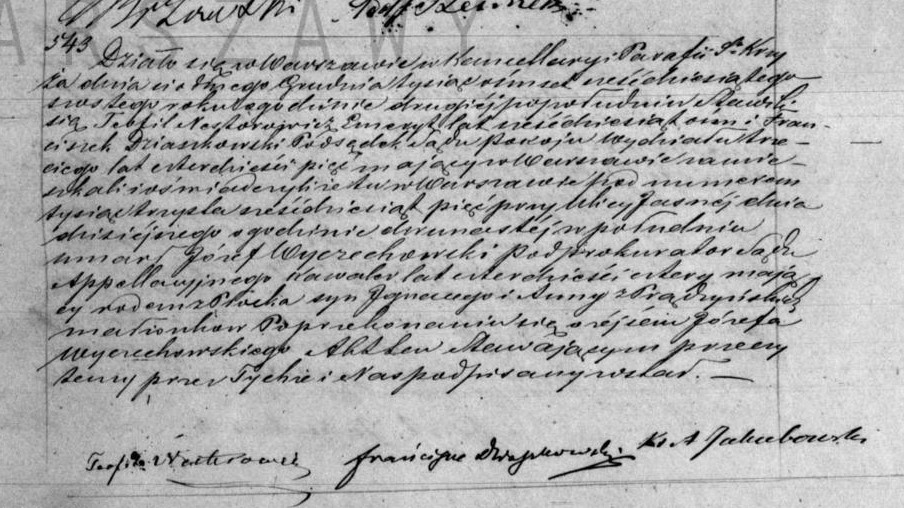 ARSZAWY
543
Działo się w Warszawie w Kancellaryi Parafii Sº Krzy
ża dnia siódmego Grudnia tysiąc ośmset sześćdziesiątego
szóstego roku o godzinie drugiej po południu Stawili
się Teofil Nestorowicz Emeryt lat sześćdziesiąt ośm i Fran-
ciszek Działkowski Podsędek Sądu Pokoju Wydziału trze-
ciego lat czterdzieści pięć mający w Warszawie zamie-
szkali i oświadczyli że tu w Warszawie pod numerem
tysiąc trzysta sześćdziesiąt pięć przy Ulicy Jasnéj dnia
dzisiejszego o godzinie dwunastéj w południe
umarł Józef Wyczechowski Podprokurator Sądu
Appellacyjnego kawaler lat czterdzieści cztery mają
cy rodem z Płocka syn Ignacego i Anny z Prądzyńskich
małżonków Po przekonaniu się o zejściu Józefa
Wyczechowskiego Akt ten Stawającym przeczy
tany przez Tychże i Nas podpisany został. —
Teofil Franciszek Ks. A Jakubowski